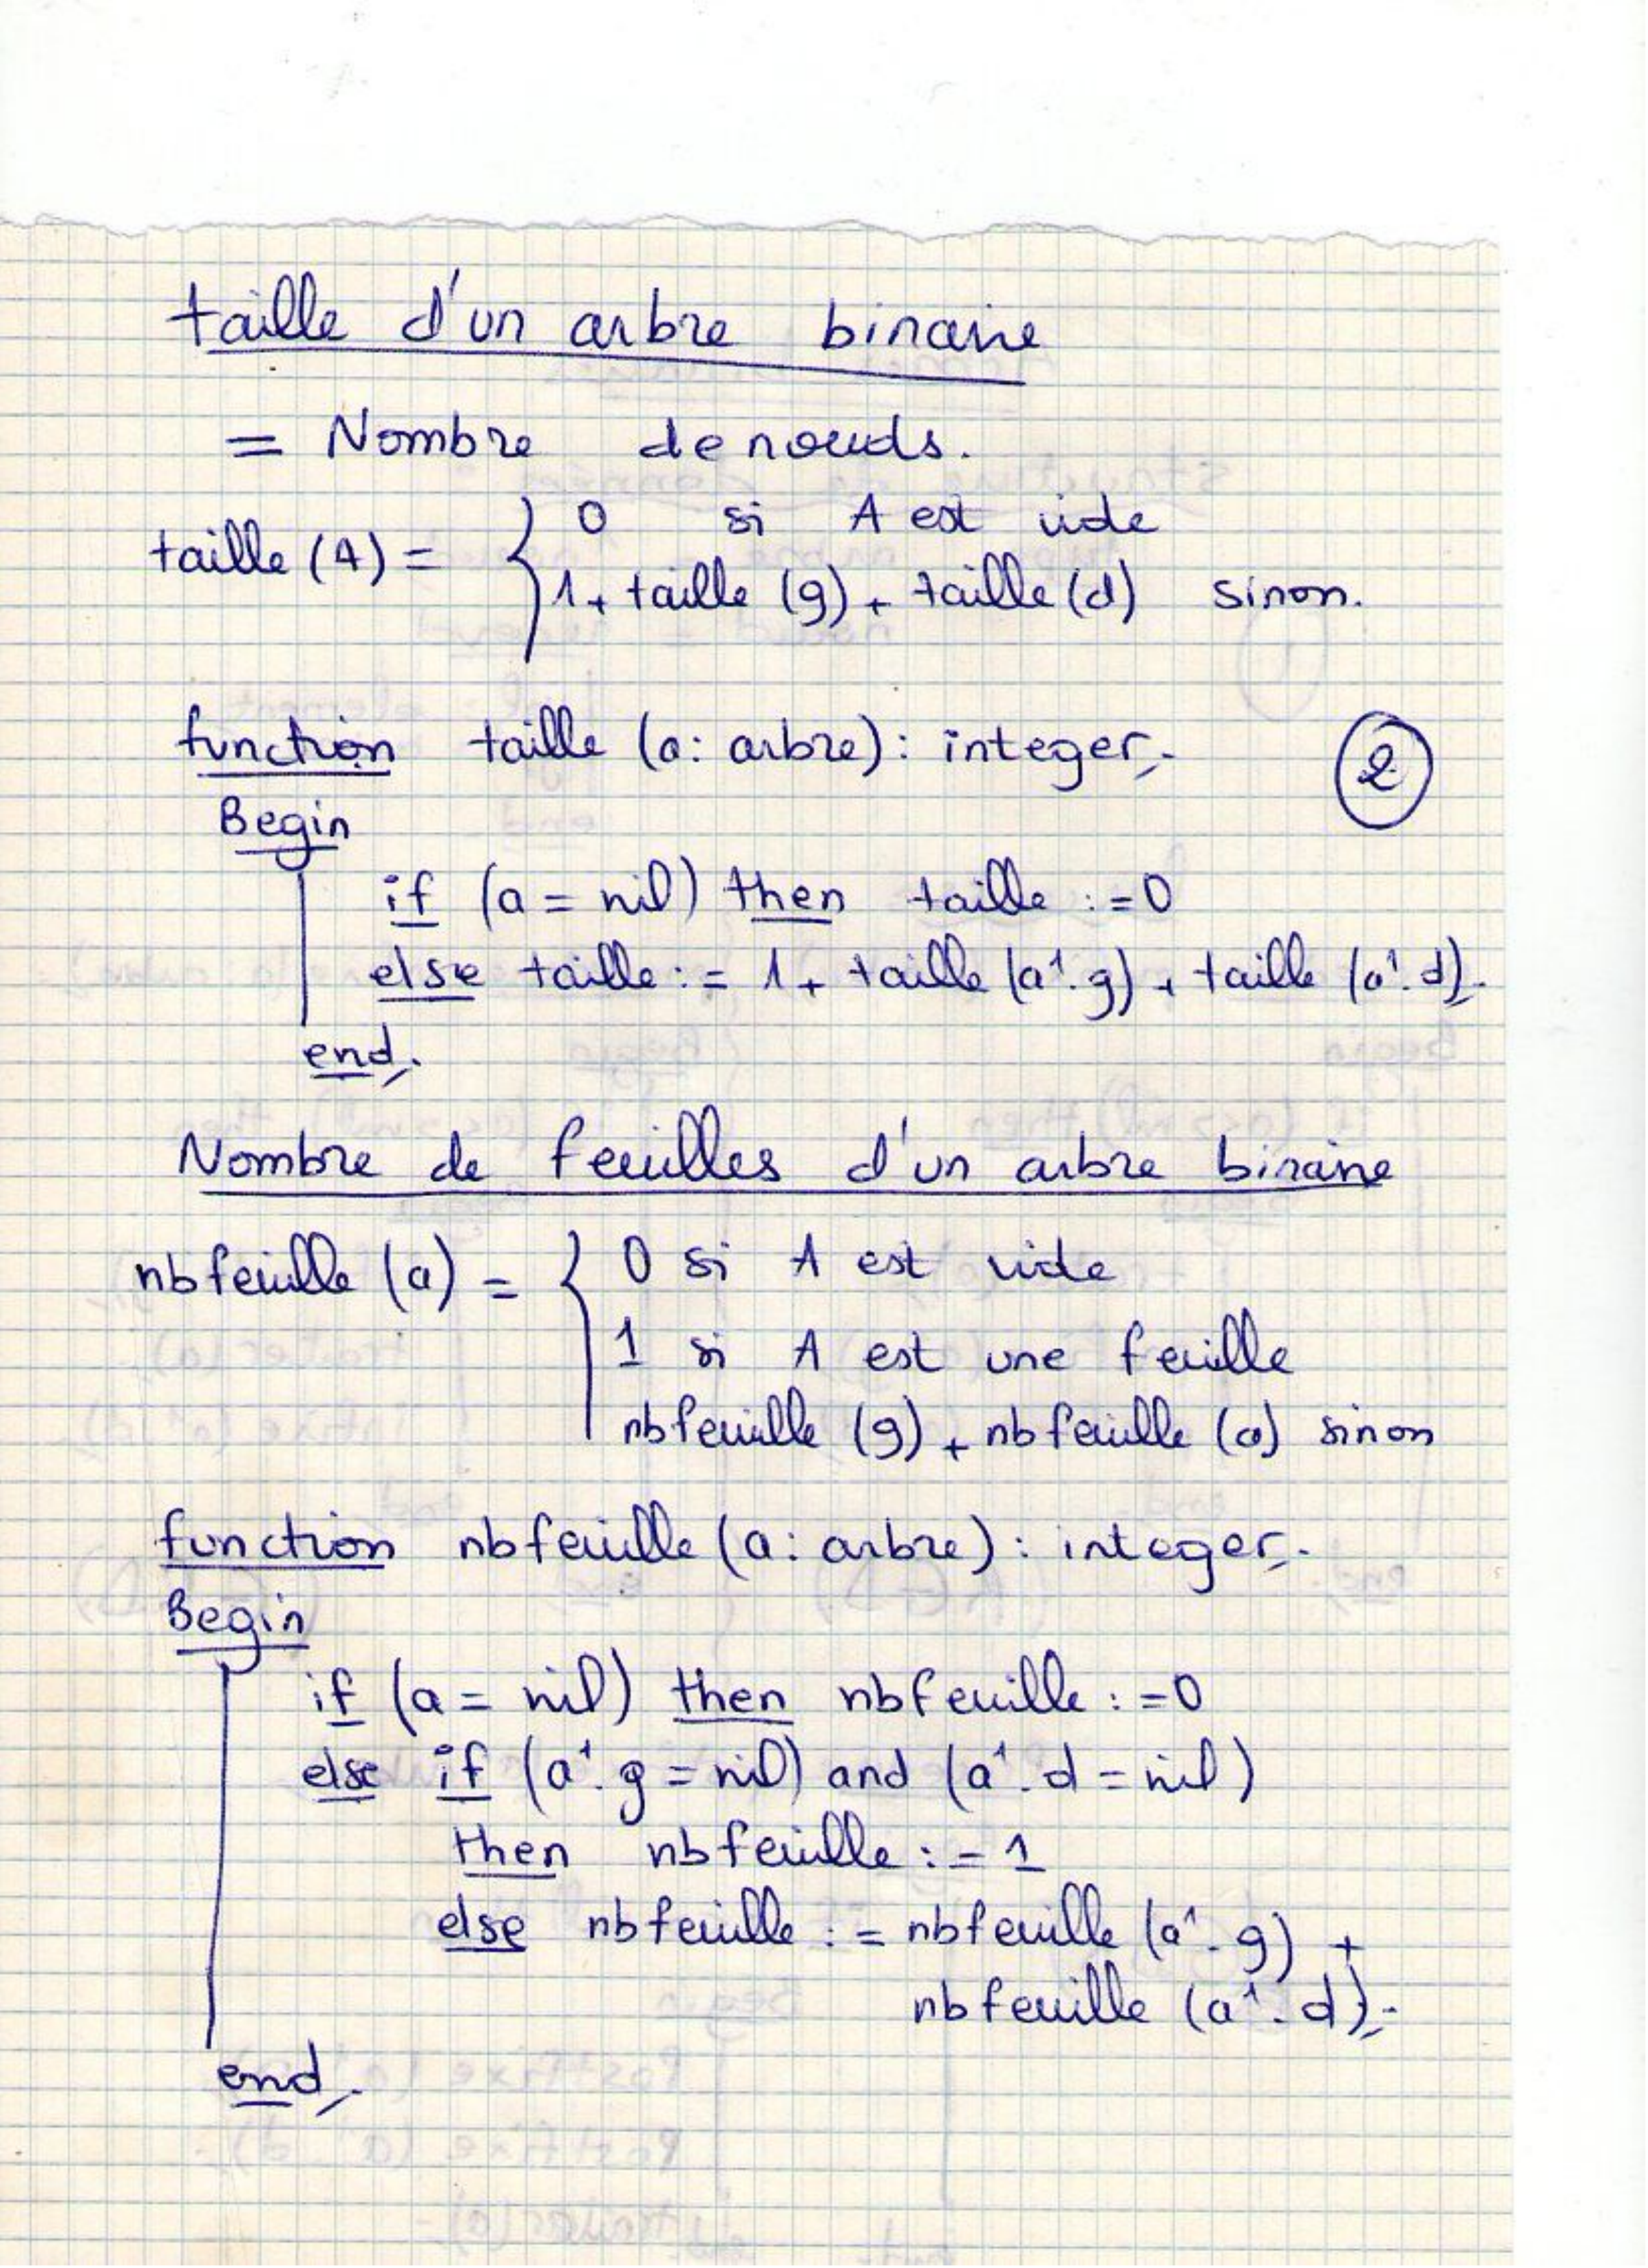 taille d'un arbre binaire
= Nombre de nœuds.
taille (A) = { 0 si A est vide
1 + taille (g) + taille (d) sinon.
function taille (a: arbre): integer;
2
Begin
if (a = nil) then taille := 0
else taille := 1 + taille (a↑.g) + taille (a↑.d);
end;
Nombre de feuilles d'un arbre binaire
nbfeuille (a) = { 0 si A est vide
1 si A est une feuille
nbfeuille (g) + nbfeuille (d) sinon
function nbfeuille (a: arbre): integer;
Begin
if (a = nil) then nbfeuille := 0
else if (a↑.g = nil) and (a↑.d = nil)
then nbfeuille := 1
else nbfeuille := nbfeuille (a↑.g) +
nbfeuille (a↑.d);
end;